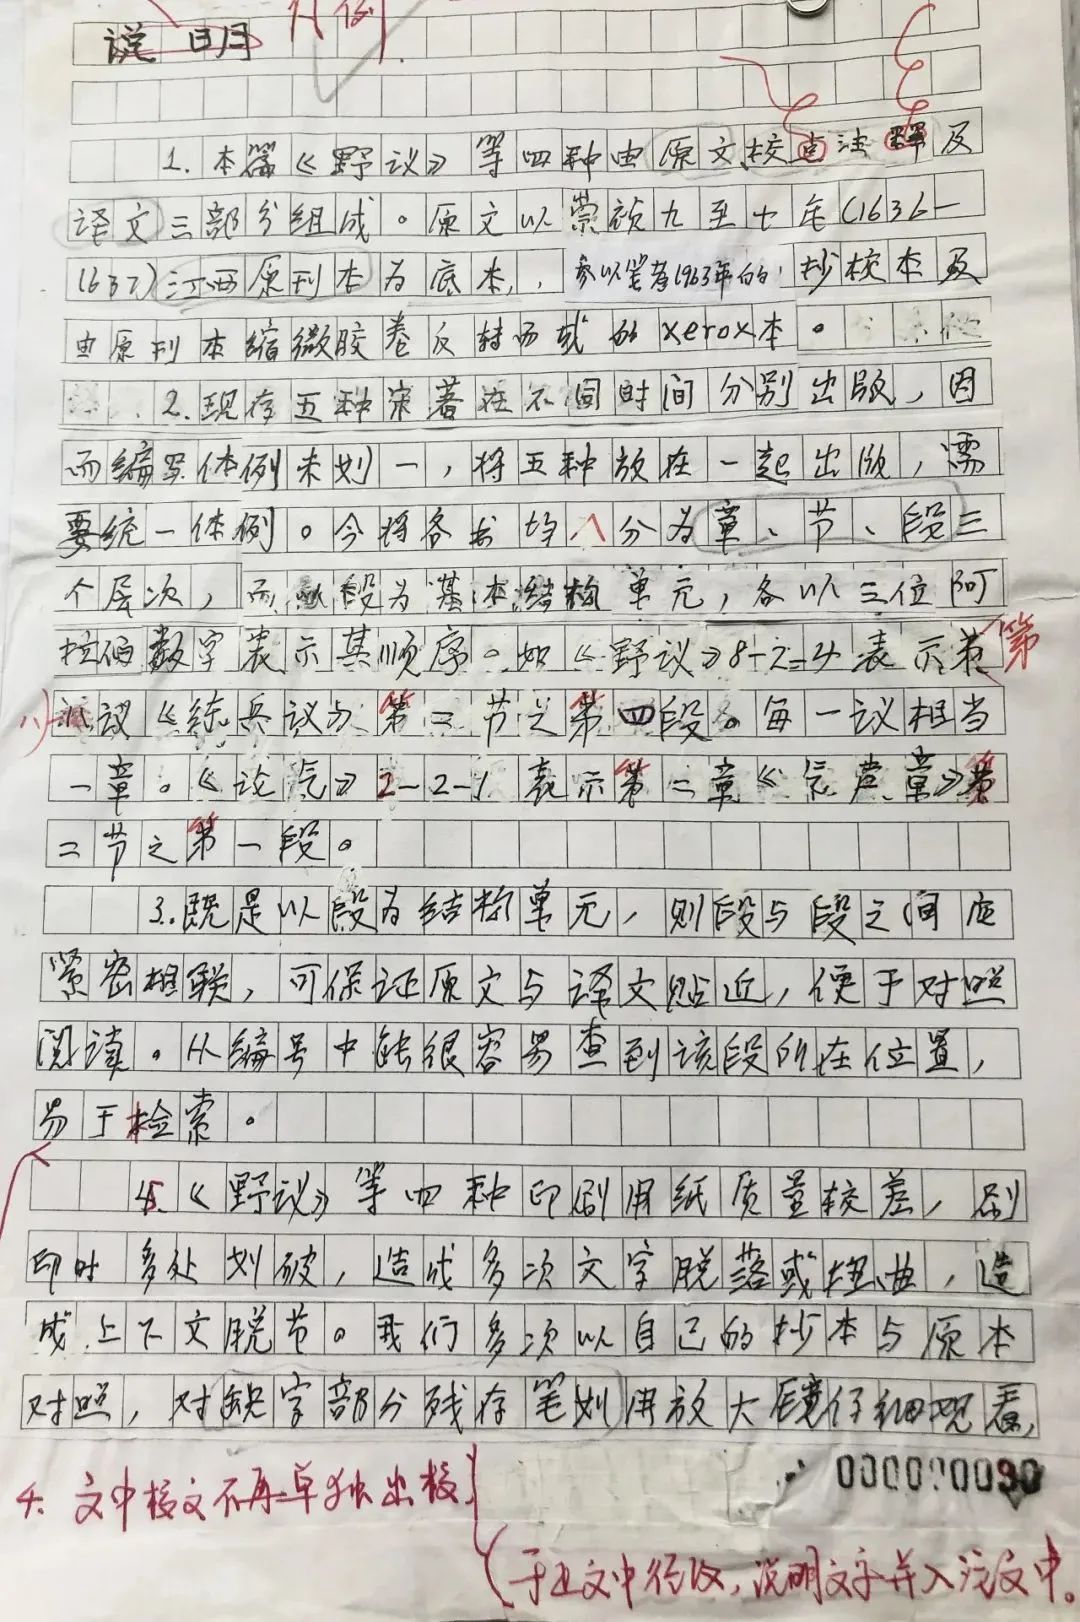 说明 凡例
1.本篇《野议》等四种由原文校点注释及
译文三部分组成。原文以崇祯九至七年(1636—
1637)江西原刊本为底本,参以笔者1963年的抄校本及
由原刊本缩微胶卷反转而成的xerox本。
2.现存五种宋著在不同时间分别出版,因
而编写体例未划一,将五种放在一起出版,需
要统一体例。今将各书均分为章、节、段三
个层次,而以段为基本结构单元,各以三位阿
拉伯数字表示其顺序。如《野议》8-2-4表示第
八议《练兵议》第二节之第四段。每一议相当
一章。《论气》2-2-1表示第二章《气声章》第
二节之第一段。
3.既是以段为结构单元,则段与段之间应
紧密相联,可保证原文与译文贴近,便于对照
阅读。从编号中能很容易查到该段所在位置,
易于检索。
5.《野议》等四种印刷用纸质量较差,刷
印时多处划破,造成多次文字脱落或扭曲,造
成上下文脱节。我们多次以自己的抄本与原本
对照,对缺字部分残存笔划用放大镜仔细观看,
000000090
4.文中校文不再单独出校,
于正文中径改,说明文字并入注文中。